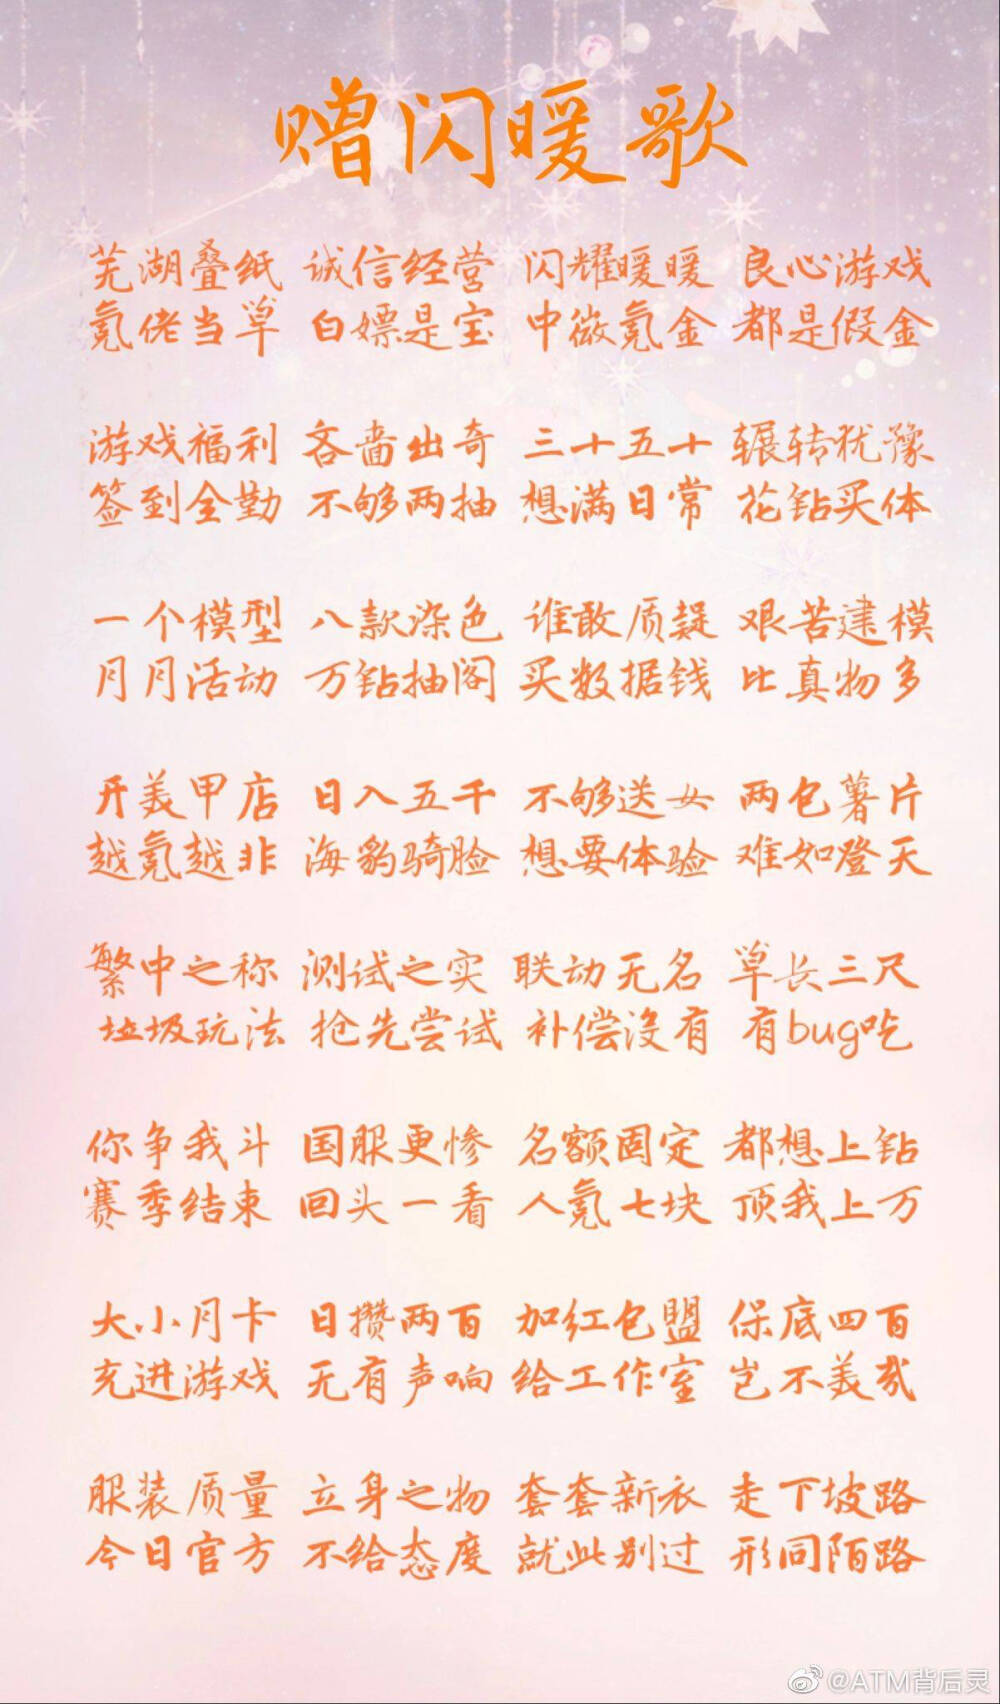 赠闪暖歌
芜湖叠纸 诚信经营 闪耀暖暖 良心游戏
氪佬当草 白嫖是宝 中微氪金 都是假金
游戏福利 吝啬出奇 三十五十 辗转犹豫
签到全勤 不够两抽 想满日常 花钻买体
一个模型 八款染色 谁敢质疑 艰苦建模
月月活动 万钻抽阁 买数据钱 比真物多
开美甲店 日入五千 不够送女 两包薯片
越氪越非 海豹骑脸 想要体验 难如登天
繁中之称 测试之实 联动无名 草长三尺
垃圾玩法 抢先尝试 补偿没有 有bug吃
你争我斗 国服更惨 名额固定 都想上钻
赛季结束 回头一看 人氪七块 顶我上万
大小月卡 日攒两百 加红包盟 保底四百
充进游戏 无有声响 给工作室 岂不美哉
服装质量 立身之物 套套新衣 走下坡路
今日官方 不给态度 就此别过 形同陌路
@ATM背后灵